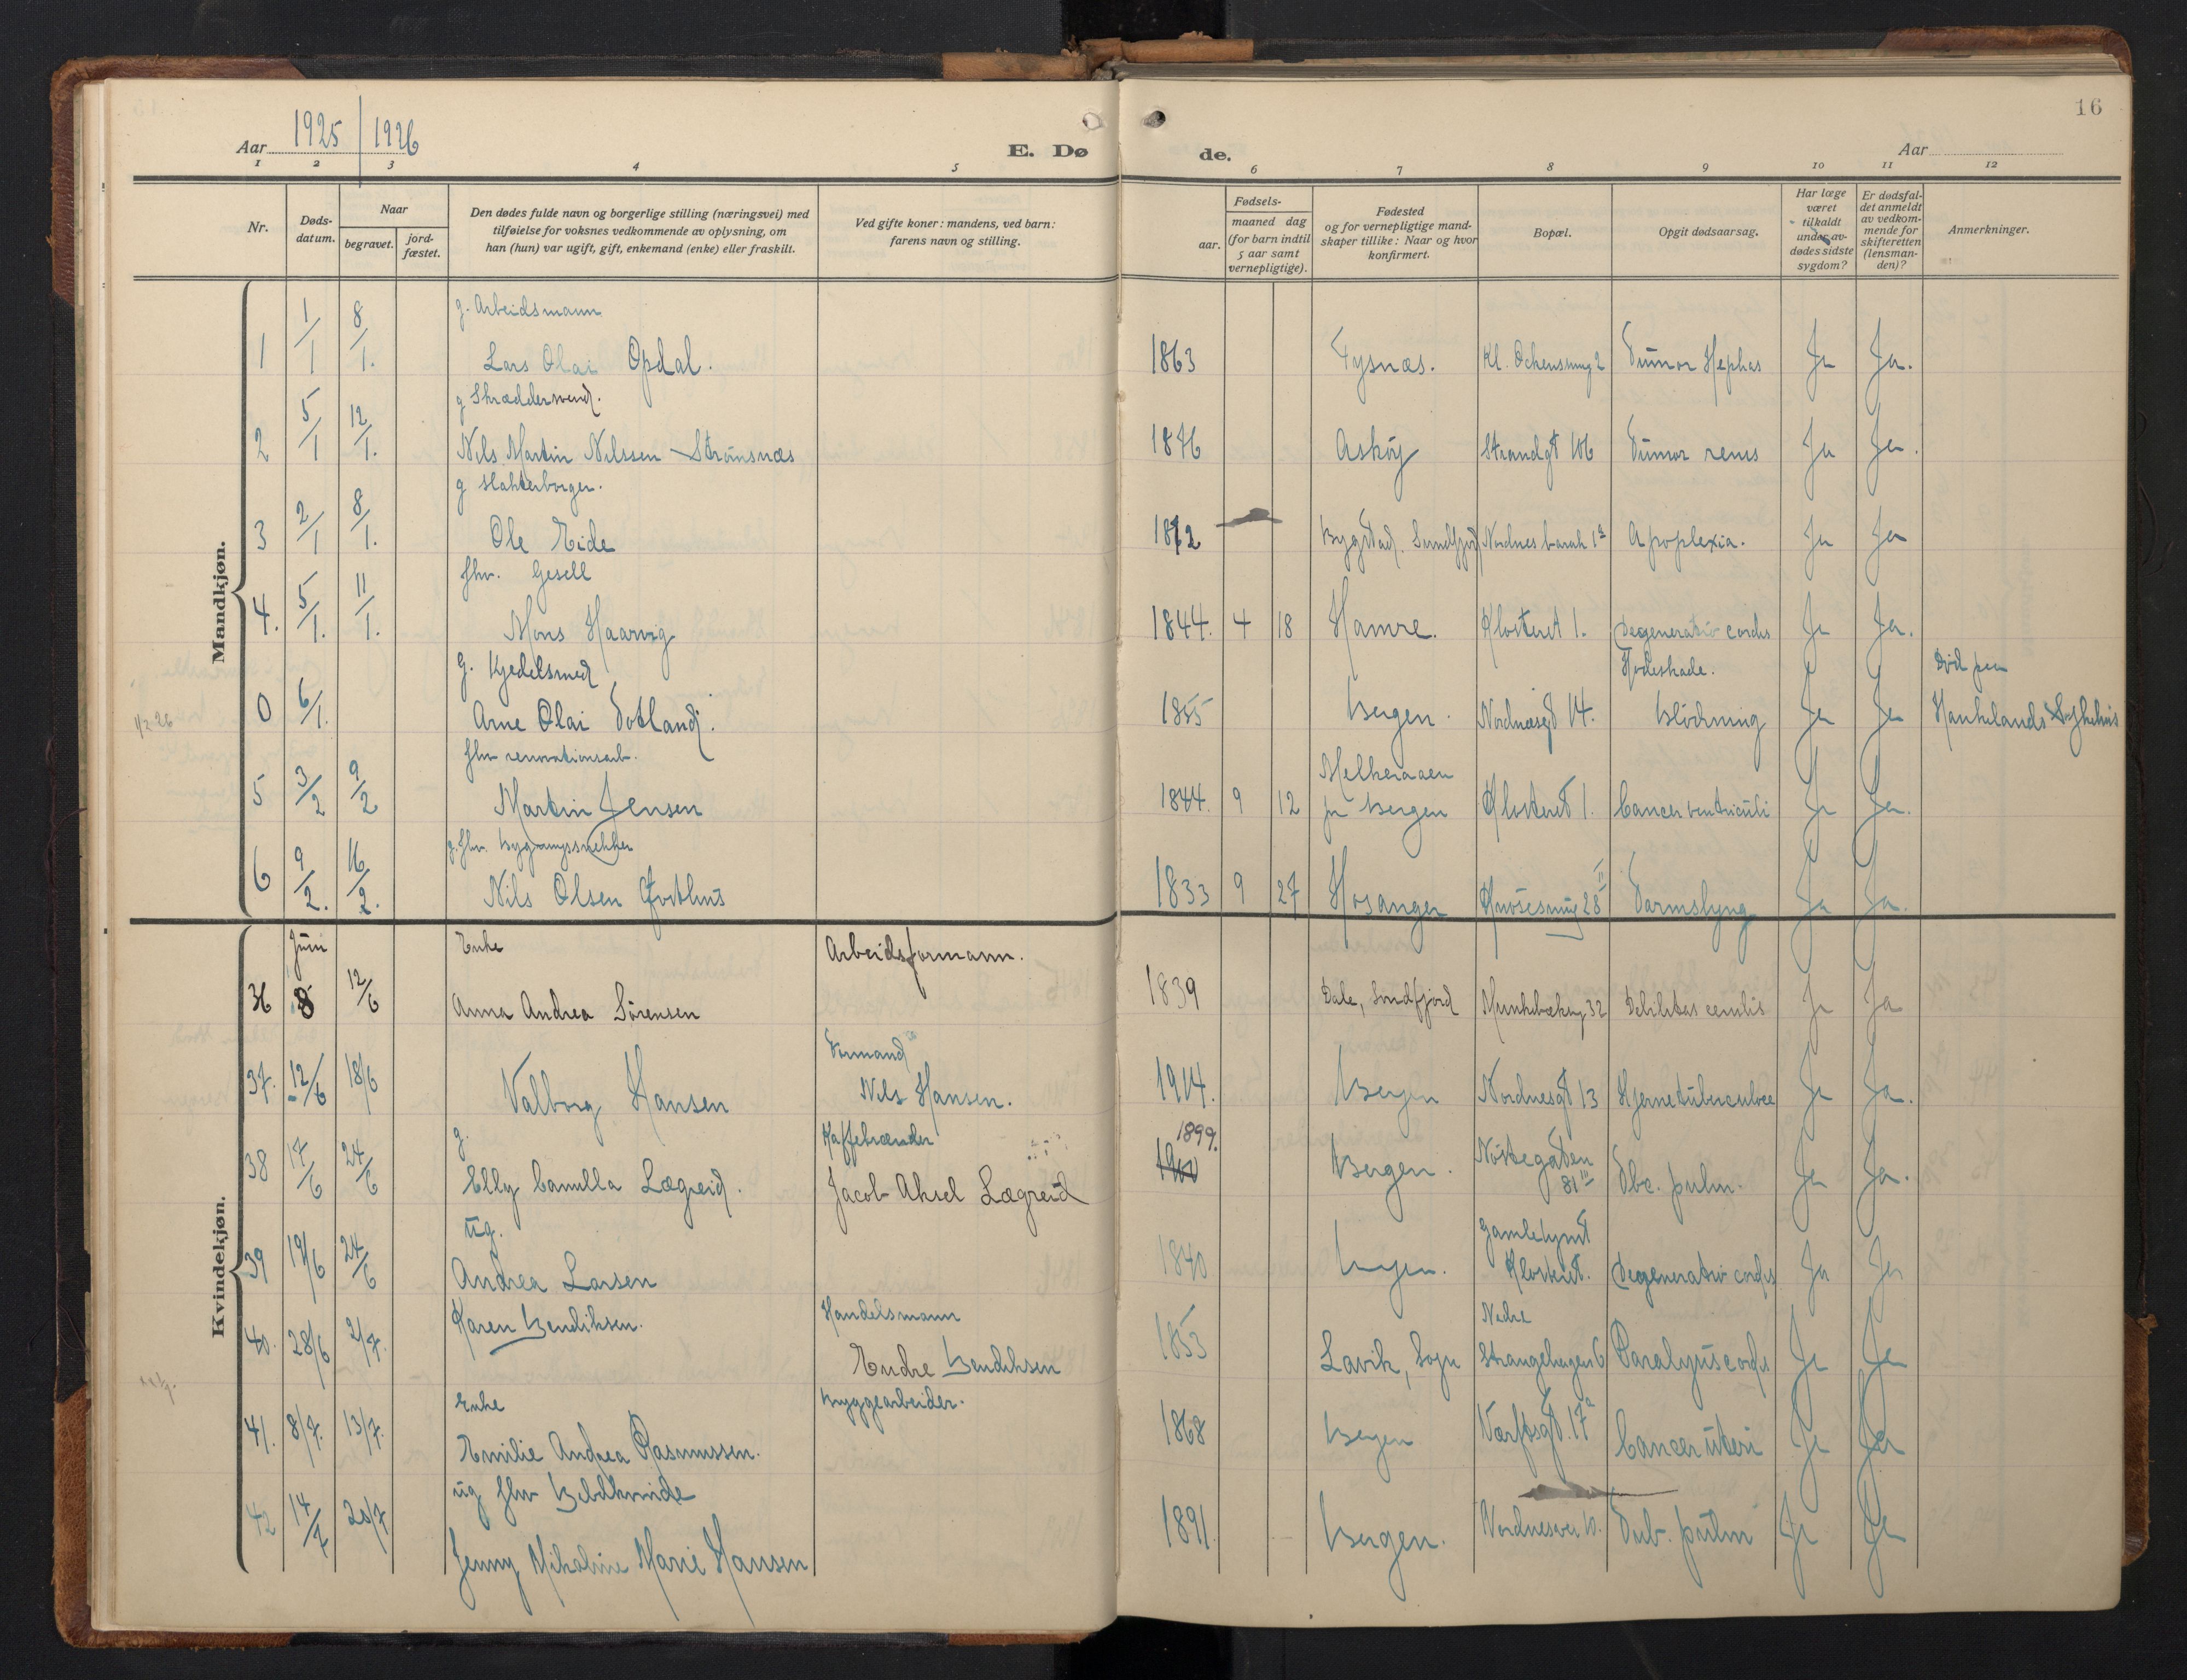 16
Aar 1925 / 1926
E. Døde.
Aar
1 2 3 4 5 6 7 8 9 10 11 12
Nr.
Døds-datum.
Naar
begravet.
jord-fæstet.
Den dødes fulde navn og borgerlige stilling (næringsvei) med
tilføielse for voksnes vedkommende av oplysning, om
han (hun) var ugift, gift, enkemand (enke) eller fraskilt.
Ved gifte koner: mandens, ved barn:
farens navn og stilling.
Fødsels-
aar.
maaned dag
(for barn indtil
5 aar samt
vernepligtige).
Fødested
og for vernepligtige mand-
skaper tillike: Naar og hvor
konfirmert.
Bopæl.
Opgit dødsaarsag.
Har læge
været
tilkaldt
under av-
dødes sidste
sygdom?
Er dødsfal-
det anmeldt
av vedkom-
mende for
skifteretten
(lensman-
den)?
Anmerkninger.
Mandkjøn.
g. Arbeidsmann
1 1/1 8/1. Lars Olai Opdal. 1863 Tysnæs. Tumor Ja Ja.
g Skræddersvend.
2 5/1 12/1. Nils Martin Nilssen Strømsnæs 1876 Askøy Strandgt 106 Tumor renis Ja Ja.
g Slakterborger.
3 2/1 8/1. Ole Eide 1872 Bygstad. Sundfjord Nordnes barak 1a Apoplexia. Ja Ja
fhv. Gesell
4. 5/1. 11/1. Mons Haarvig 1844. 4 18 Hamre. Klosteret 1. Degeneratio cordis Ja Ja.
g. Kjedelsmed Hodeskade. Død paa
0 6/1. Arne Olai Totland. 1855 Bergen. Nordnesgt 14. Blødning Ja Ja Haukelands Sykehus
1/2 26
fhv renovationsarb. Melkeraaen
5 3/2 9/2 Martin Jensen 1844. 9 12 pr Bergen Klosteret 1. Cancer ventriculi Ja Ja.
g. fhv. Bygningssnekker
6 9/2. 16/2. Nils Olsen 1833 9 27 Hosanger Knøsesmug 28 II Tarmslyng Ja Ja.
Kvindekjøn.
Juni Enke Arbeidsformann.
36 8 12/6 Anna Andrea Sørensen 1839 Dale, Sundfjord 32 Debilitas senilis Ja Ja
Formand
37. 12/6 18/6 Valborg Hansen Nils Hansen. 1914. Bergen Nordnesgt 13 Hjernetuberculose Ja Ja.
g. Kaffebrænder 1899. Nøstegaten
38 17/6 24/6 Elly Camilla Lægreid. Jacob Aksel Lægreid 1900 Bergen. 81 III Tbc. pulm. Ja Ja.
ug. Gamlehjemt
39 19/6 24/6 Andrea Larsen 1840 Bergen. Klosteret. Degeneratio cordis Ja Ja
Karen Bendiksen. Handelsmann Nedre
40. 28/6 2/7. Endre Bendiksen 1853 Lavik, Sogn Strangehagen 6 Paralysis cordis Ja Ja
Enke Bryggearbeider.
41. 8/7. 13/7. Emilie Andrea Rasmussen. 1868 Bergen Værftsgt. 17a Cancer uteri Ja Ja
ug fhv Budkvinde
42 14/7 20/7 Jenny Mikaline Marie Hansen 1891. Bergen. Nordnesvei 10. Tub. pulm Ja Ja